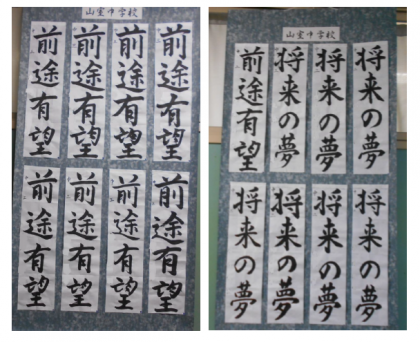 山室中学校
前途有望
前途有望
前途有望
前途有望
前途有望
前途有望
前途有望
前途有望
山室中学校
将来の夢
将来の夢
将来の夢
前途有望
将来の夢
将来の夢
将来の夢
将来の夢